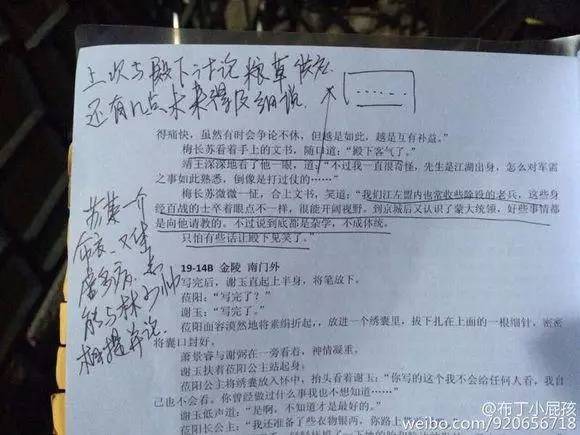 上次与殿下讨论粮草供应
还有几点未来得及细说
......
得痛快，虽然有时会争论不休，但越是如此，越是互有补益。”
梅长苏看着手上的文书，随口道：“殿下客气了。”
靖王深深地看了他一眼，道：“不过我一直很奇怪，先生是江湖出身，怎么对军需
之事如此熟悉，倒像是打过仗的……”
梅长苏微微一怔，合上文书，笑道：“我们江左盟内也常收些除役的老兵，这些身
经百战的士卒着眼点不一样，很能开阔视野。到京城后又认识了蒙大统领，好些事情都
是向他请教的。不过说到底都是杂学，不成体统。
只怕有些话让殿下见笑了。”
苏某一介
布衣、又体
虚多病，岂
能与林少帅
相提并论.
19-14B 金陵 南门外
写完后，谢玉直起上半身，将笔放下。
莅阳：“写完了？”
谢玉：“写完了。”
莅阳面容漠然地将素绢折起，放进一个绣囊里，拔下扎在上面的一根细针，密密
将囊口封好。
萧景睿与谢弼在一旁看着，神情凝重。
谢玉扶着莅阳公主站起身。
莅阳公主将绣囊放入怀中，抬头看着谢玉：“你写的这个我不会给任何人看，我自
己也不会看。你曾经做过什么事我也不想知道……”
谢玉低声道：“是啊，不知道才是最好的。”
莅阳长公主：“我还准备了些衣物银两，你路上
@布丁小屁孩
weibo.com/920656718